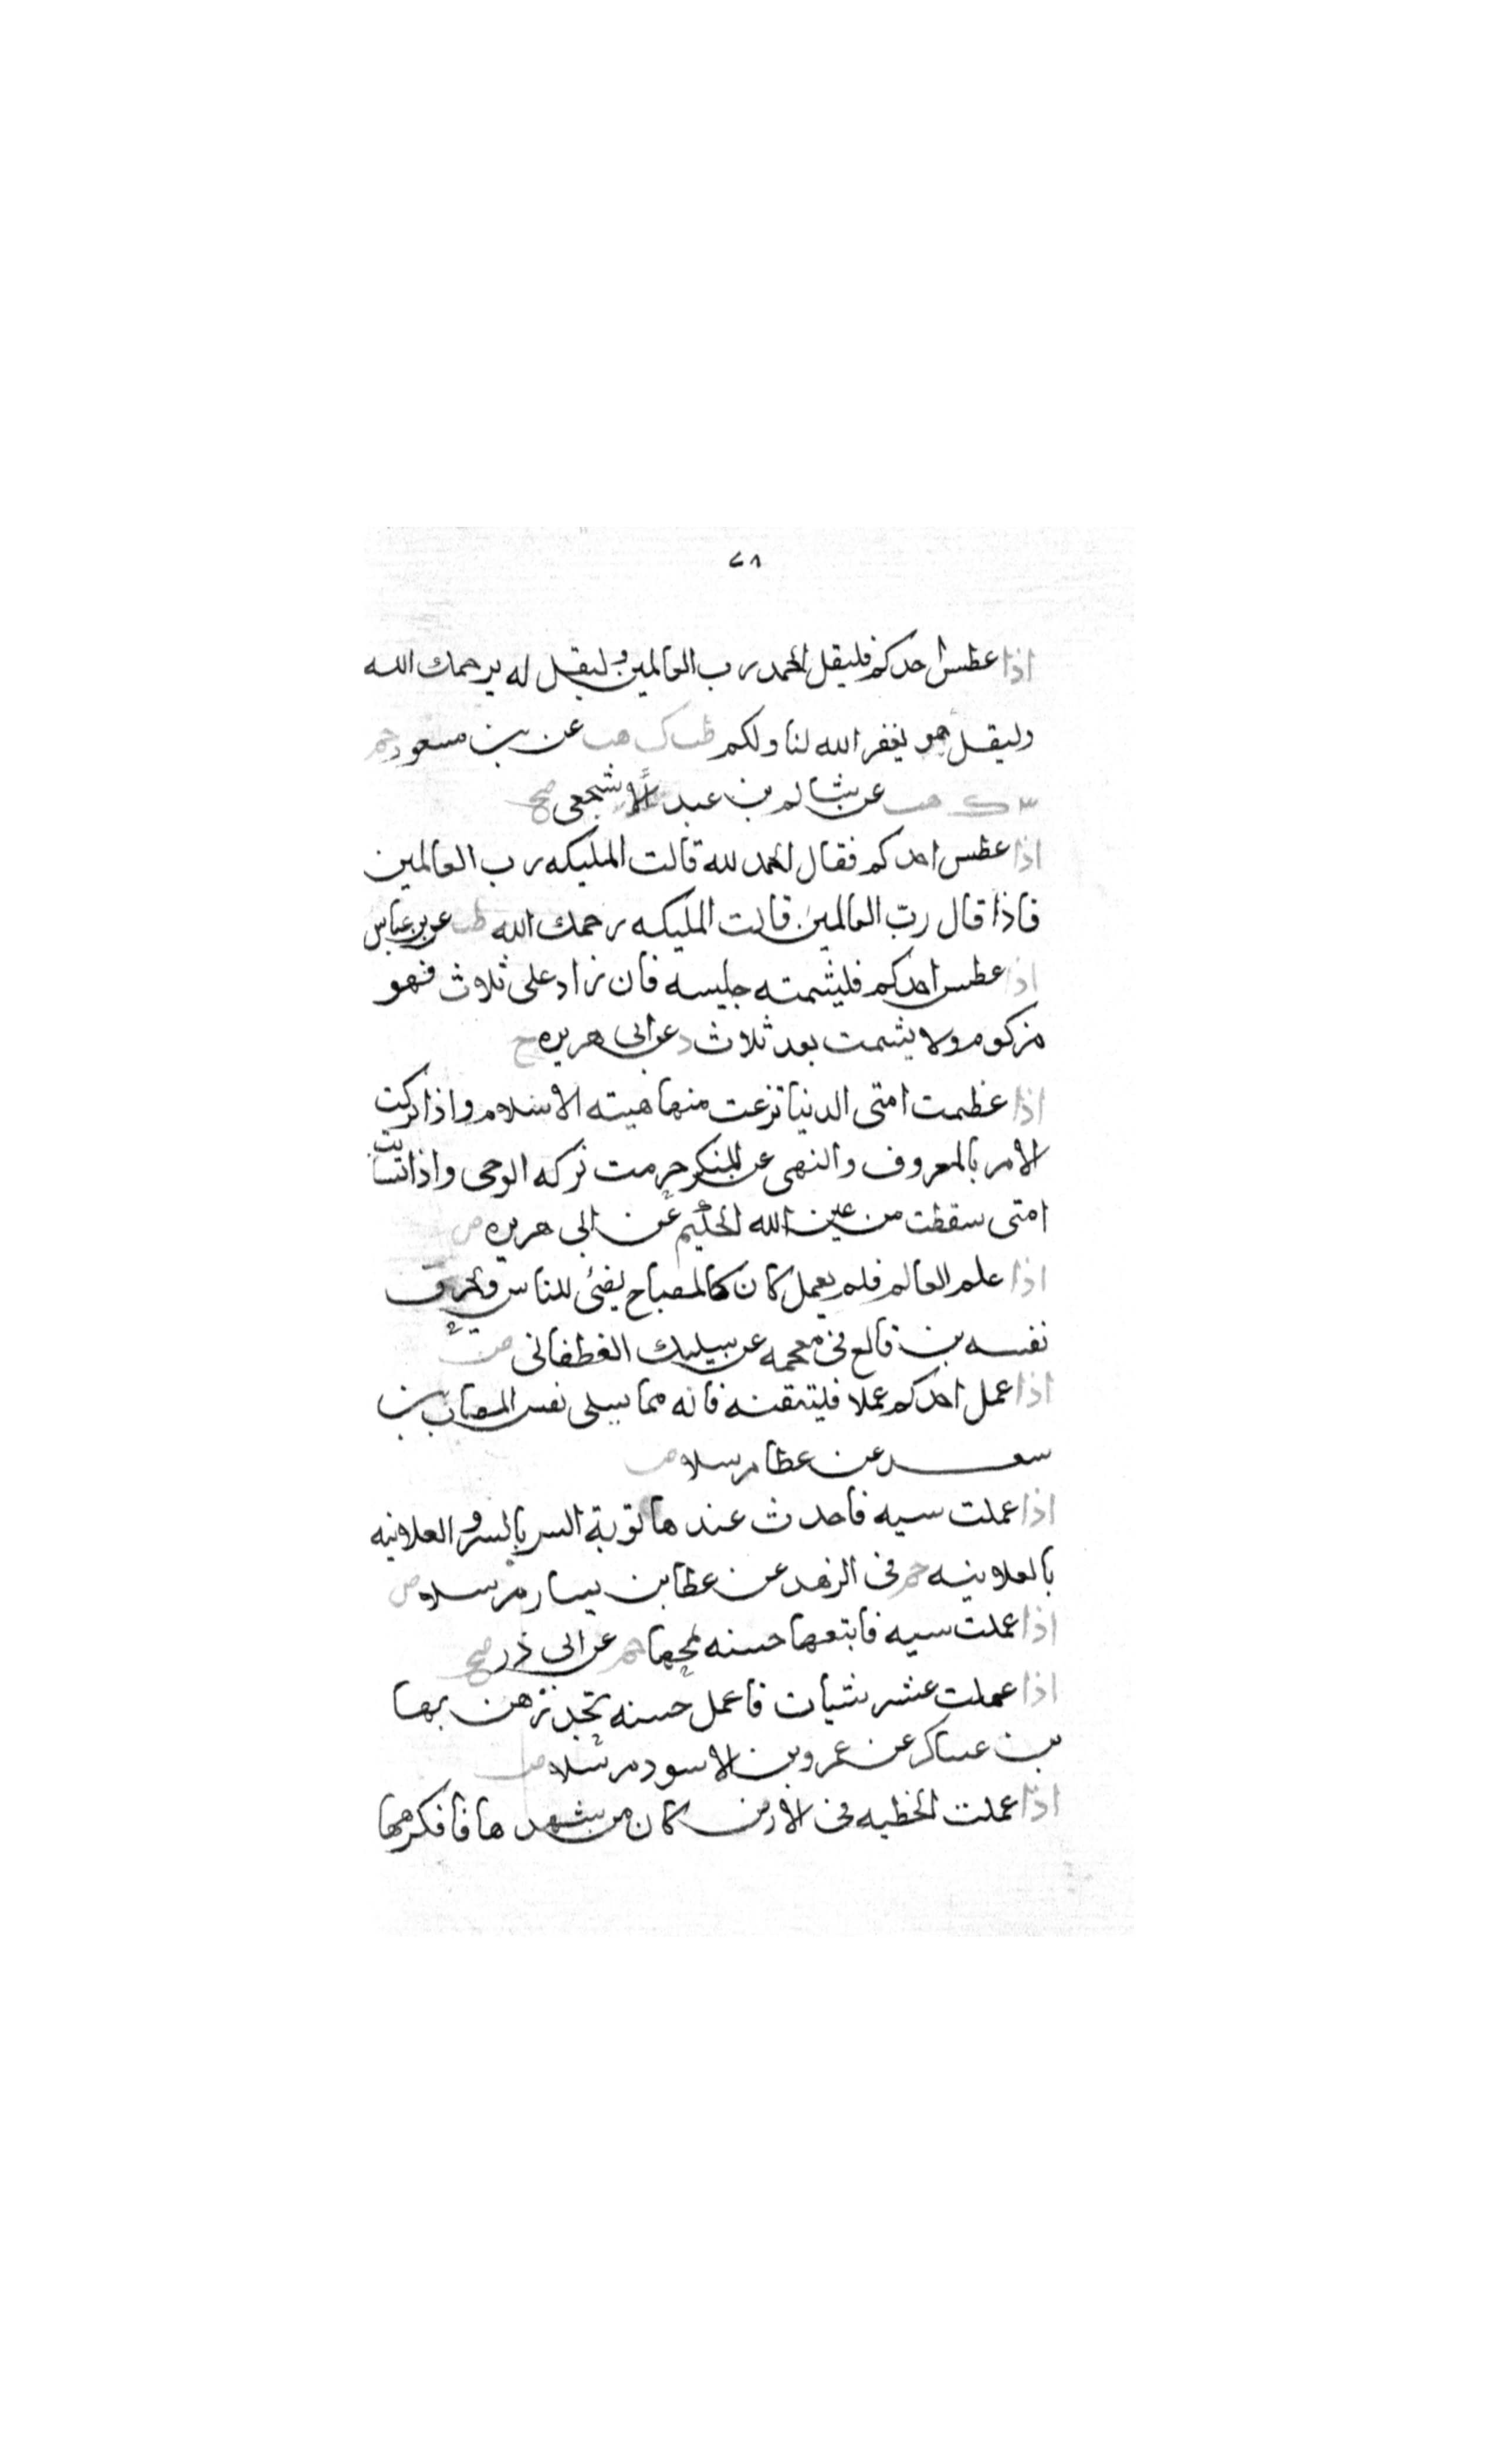 ٧٨
اذا عطس احدكم فليقل الحمد رب العالمين وليقل له يرحمك الله
وليقل هو يغفر الله لنا ولكم طب ك هب عن بن مسعود حم
٣ ك هب عن سالم بن عبد الاشجعى صح
اذا عطس احدكم فقال الحمد لله قالت المليكه رب العالمين
فاذا قال ربّ العالمين قالت المليكه رحمك الله طب عن بن عباس
اذا عطس احدكم فليشمته جليسه فان زاد على ثلاث فهو
مزكوم ولا يشمت بعد ثلاث د عن ابى هريره ح
اذا عظمت امتى الدنيا نزعت منها هيبته الاسلام واذا تركت
الامر بالمعروف والنهى عن المنكر حرمت بركه الوحى واذا تسابت
امتى سقطت من عين الله الحكيم عن ابى هريره ض
اذا علم العالم فلم يعمل كان كالمصباح يضئ للناس ويحرق
نفسه بن قانع فى معجمه عن سليك الغطفانى ض
اذا عمل احدكم عملا فليتقنه فانه مما يسلى نفس المصاب بن
سعد عن عطا مرسلا ض
اذا عملت سيه فاحدث عندها توبة السر بالسر والعلانيه
بالعلانيه حم فى الزهد عن عطا بن يسار مرسلا ض
اذا عملت سيه فاتبعها حسنه تمحها حم عن ابى ذر صح
اذا عملت عشر سيات فاعمل حسنه تحدرهن بها
بن عساكر عن عمرو بن الاسود مرسلا ض
اذا عملت الخطيه فى الارض كان من شهدها فافكرهها